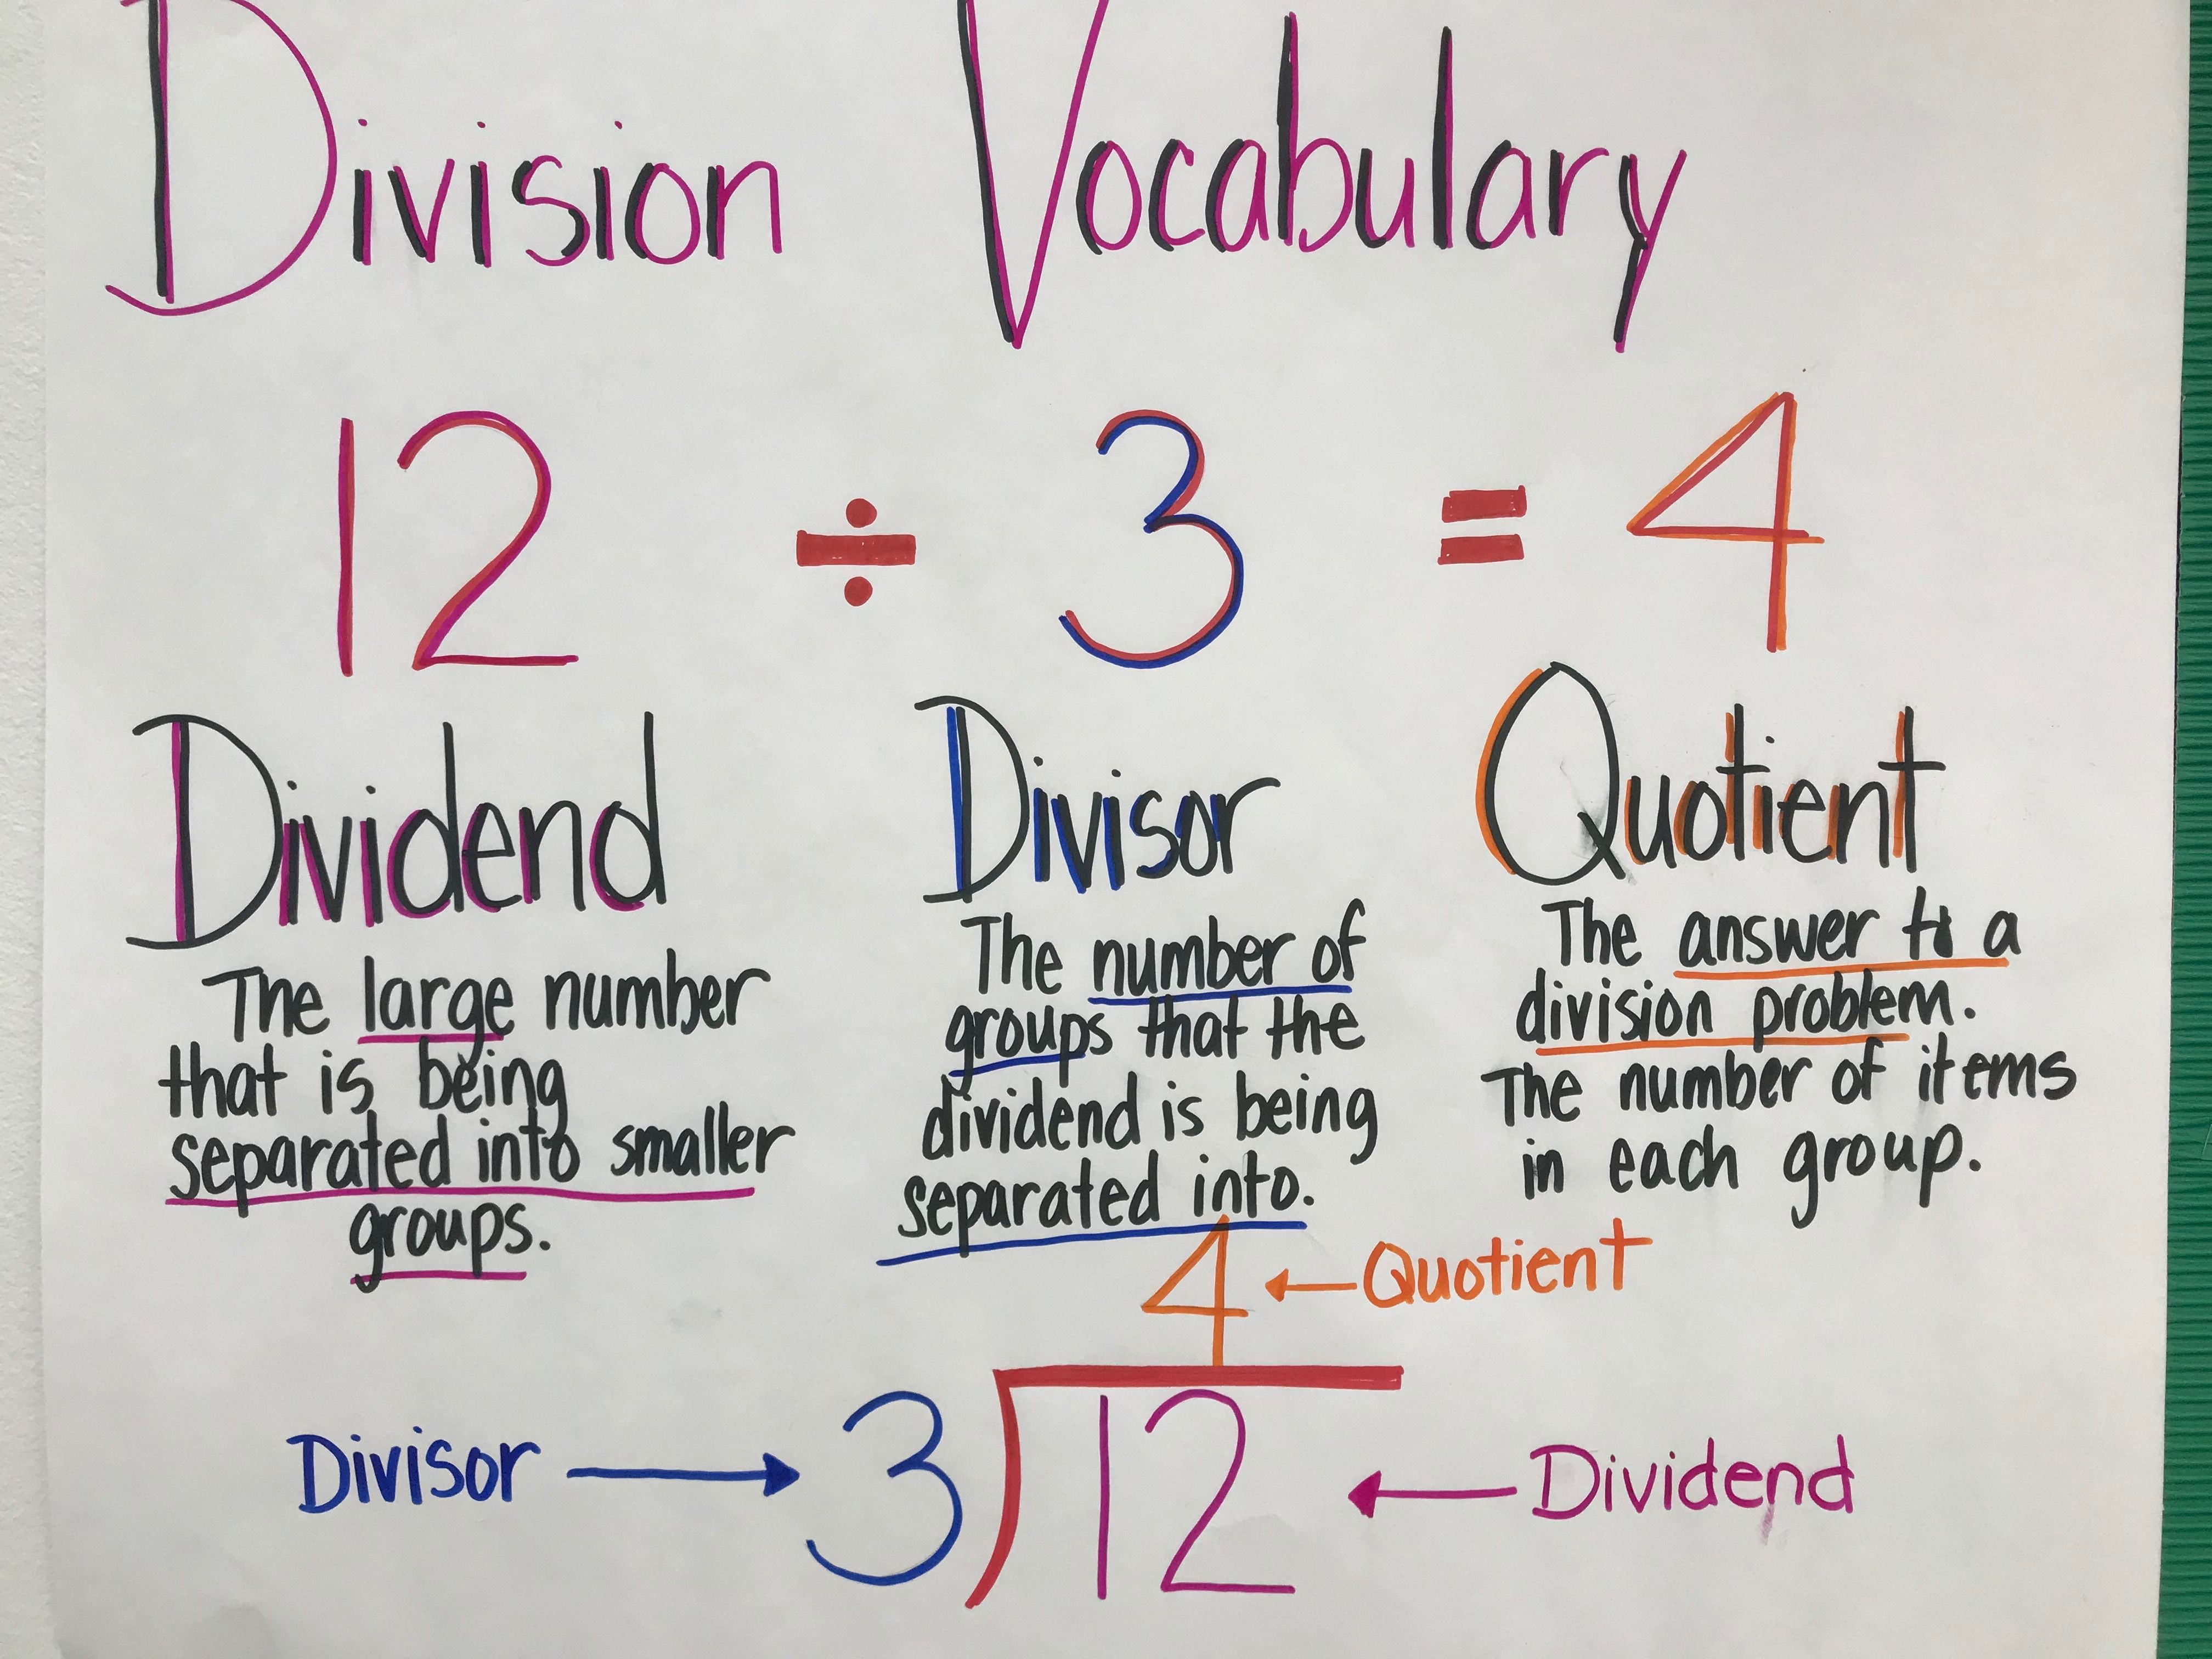 Division Vocabulary
12 ÷ 3 = 4
Dividend
The large number
that is being
separated into smaller
groups.
Divisor
The number of
groups that the
dividend is being
separated into.
Quotient
The answer to a
division problem.
The number of items
in each group.
4 ← Quotient
Divisor → 3 12 ← Dividend